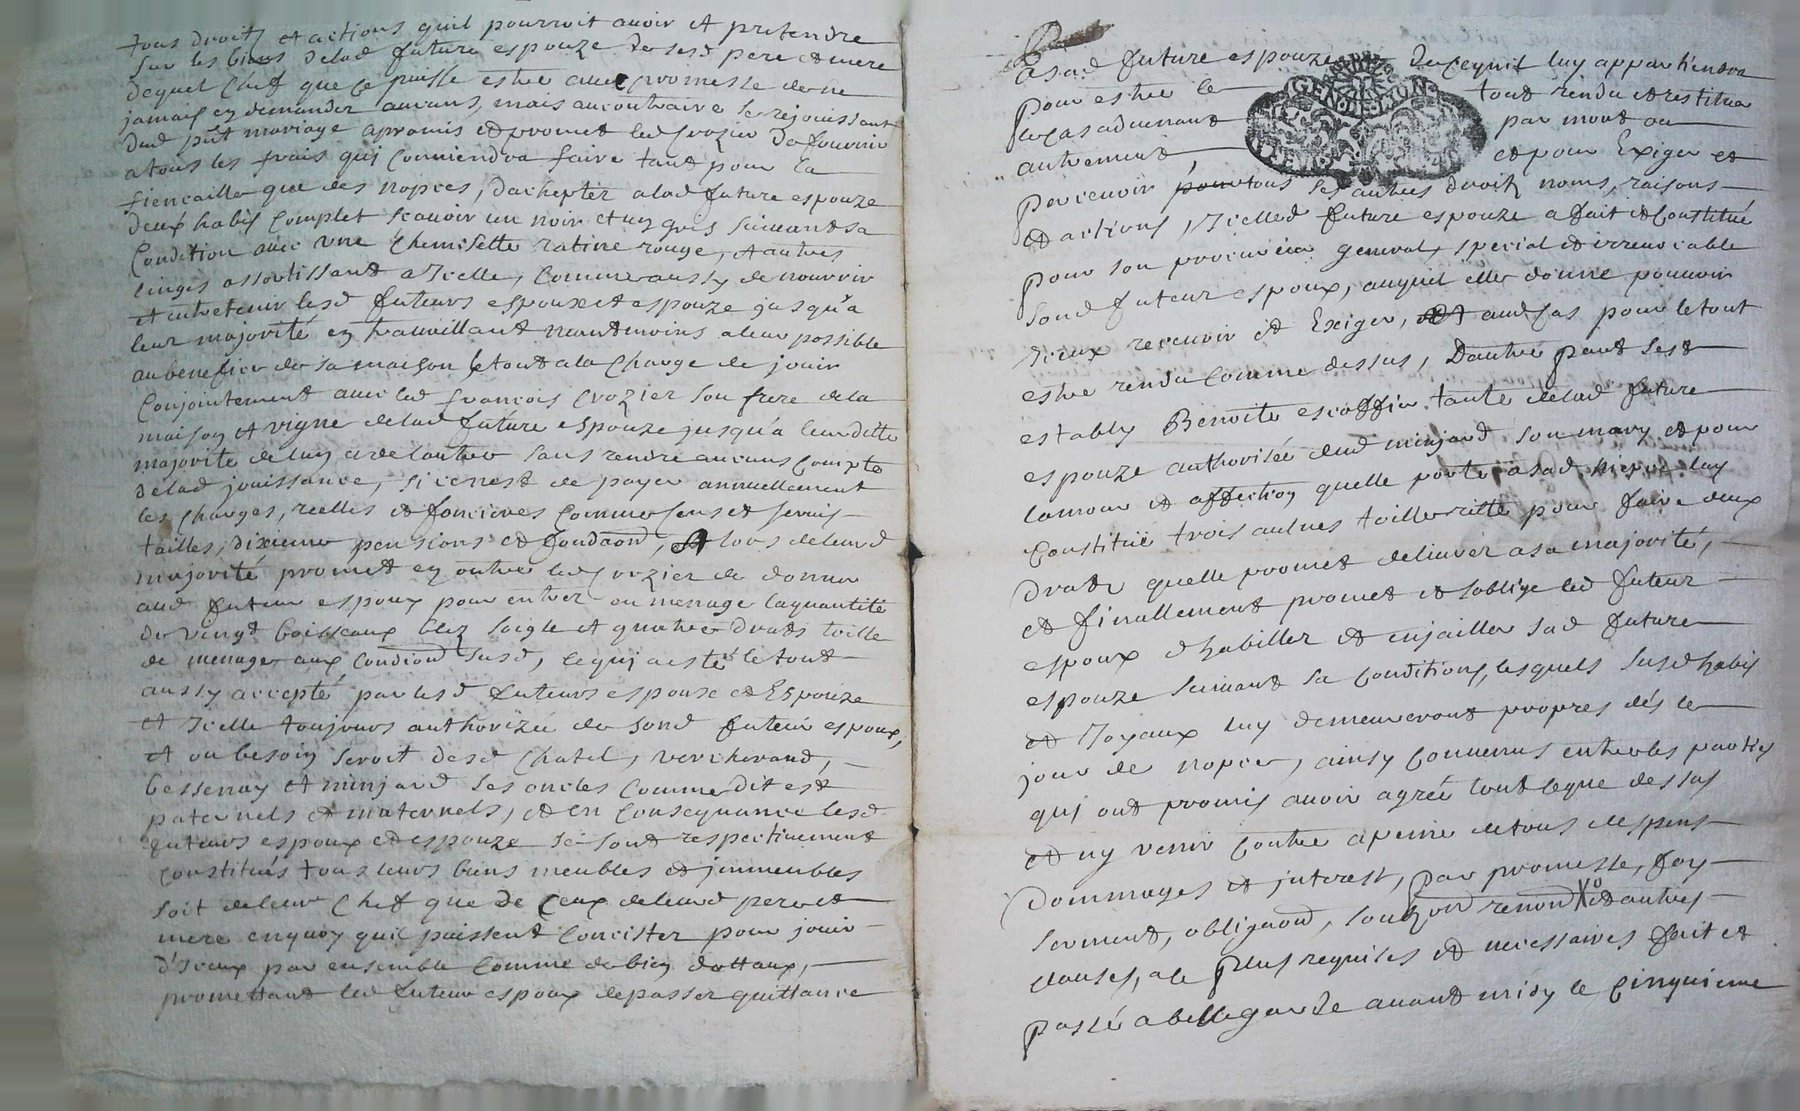 tous droits et actions quil pourroit avoir et pretendre
sur les biens delad future espouze de sesd pere et mere
dequel chef que ce puisse estre avec promesse de ne
jamais en demander aucuns, mais au contraire se rejouissant
dud pñt mariage a promis et promet led Crozier de fournir
a tous les frais quj conviendra faire tant pour la
fiencaille que des nopces, dachepter a lad future espouze
deux habis complet scavoir un noir et un gris suivant sa
Condition avec une chemisette ratine rouge, et autres
linges assortissant a Icelle, Comme aussy de nourrir
et entretenir lesd futeurs espoux et espouze jusqu'a
leur majorité en travaillant neantmoins a leur possible
au benefice de sa maison le tout a la charge de jouir
Conjointement avec led françois Crozier son frere de la
maison et vigne de lad future espouze jusqu'a leur ditte
majorité de lun a de lautre sans rendre aucuns Compte
delad jouissance, si ce nest de payer annuellement
les charges, reelles et foncieres Comme Cens et servis
tailles, dixieme pensions et fondaon, et lors de leurd
majorité promet en outre led Crozier de donner
aud futeur espoux pour entrer en menage la quantité
de vingt boisseaux blez soigle et quatre drats toille
de menage aux condions susd, ce quj a esté le tout
aussy accepté par lesd futeurs espoux et Espouze
et Icelle toujours authorizée de sond futeur espoux,
et ou besoin seroit desd Chatel, vercherand,
bessenay et minjard ses oncles Comme dit est
paternels et maternels, et en Consequance lesd
futeurs espoux et espouze se sont respectivement
constitués tous leurs biens meubles et jmmeubles
soit de leur chef que de ceux de leurd pere et
mere en quoy quil puissent Concister pour jouir
d'Iceux par ensemble Comme de bien dottaux,
promettant led futeur espoux de passer quittance
a sad future espouze de ce qu'il luy appartiendra
GEN. DE LYON
pour estre le tout rendu et restitué
le cas advenant par mort ou
autrement, et pour Exiger et
percevoir pour tous ses autres droits noms, raisons
et actions, Icelled future espouze a fait et Constitué
pour son procureur general, special et irrevocable
sond futeur espoux, auquel elle donne pouvoir
Iceux recevoir et Exiger, aud Cas pour le tout
estre rendu comme dessus, Dautre part sest
estably Benoite escoffier tante delad future
espouze authorisée dud minjard son mary et pour
lamour et affection quelle porte a sad niepce luy
Constitue trois aulnes toille ritte pour faire deux
drats quelle promet delivrer a sa majorité,
et finallement promet et soblige led futeur
espoux dhabiller et enjailler sad future
espouze suivant sa Condition, lesquels susd habis
et Joyaux luy demeureront propres dés le
jour de nopces, ainsy Convenus entre les parties
quj ont promis avoir agreé tout ce que dessus
et ny venir Contre a peine de tous despens
dommages et jnterest, par promesse, foy
serment, obligaon, soubzon renonon et autres
clauses, a le plus requises et necessaires fait et
passé a bellegarde avant midy le Cinquieme